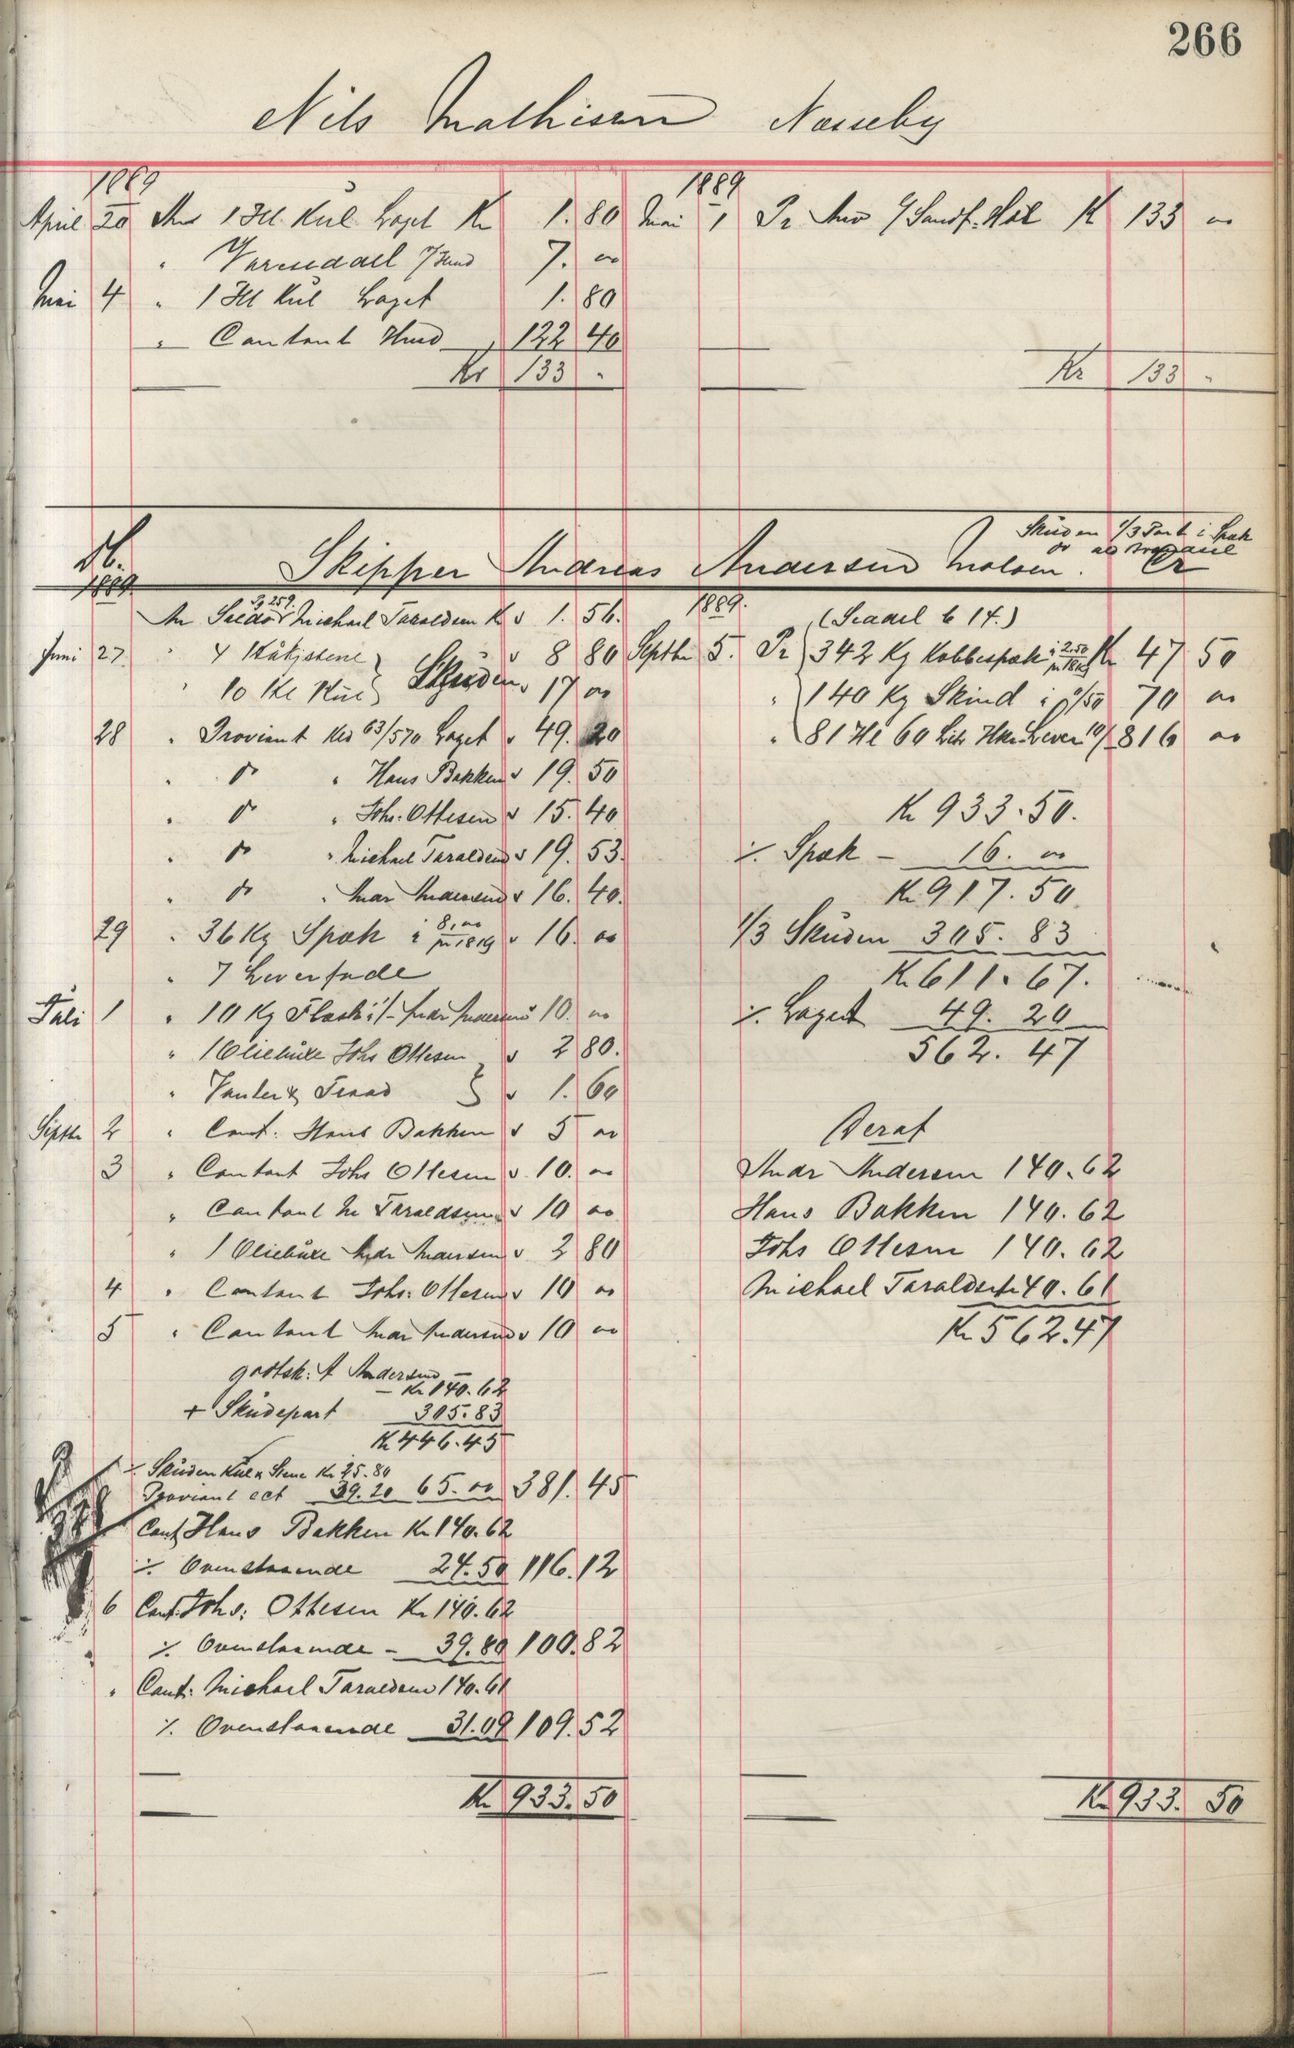 266
Nils Mathisen Næsseby
1889
April 20 An 1 Hl Kul Laget Kr 1. 80
" Varesedael 7. 00
Mai 4 " 1 Hl Kul Laget 1. 80
" Contant 122 40
Kr 133 "
1889
Mai 1 Pr 133 00
Kr 133 "
Skuden 1/3 Part i Spæk
Db. Skipper Andreas Andersen Moloen. Cr
1889.
Pg 259.
An Saldo Michael Taraldsen K 1. 56.
Juni 27 " 4
" 10 Hl Kul } Skuden 17 00
8 80
28 " Proviant No 63/570 Laget 49. 20
" do " Hans Bakken 19. 50
" do " Johs: Ottesen 15. 40
" do " Michael Taraldsen 19. 53.
" do " Andr Andersen 16. 40.
29 " 36 Kg Spæk à 8,00 pr 18 Kg 16. 00
" 7 Leverfade
Juli 1 " 10 Kg Flæsk 1/- Andr Andersen 10. 00
" 1 Oliebuxe Johs Ottesen 2 80.
" Vanter & Traad } 1. 60
Septbr 2 " Cont: Hans Bakken 5 00
3 " Contant Johs Ottesen 10. 00
" Contant M Taraldsen 10 00
" 1 Oliebuxe Andr Andersen 2 80
4 " Contant Johs: Ottesen 10 00
5 " Contant Andr Andersen 10 00
godtsk: A Andersen
— Kr 140. 62
+ Skudepart 305. 83
Kr 446. 45
÷ Skuden Kul & Stene Kr 25. 80
Proviant ect 39. 20 65. 00 381. 45
Cont Hans Bakken Kr 140. 62
÷ Ovenstaaende 24. 50 116. 12
6 Cont: Johs: Ottesen Kr 140. 62
÷ Ovenstaaende - 39. 80 100. 82
" Cont: Michael Taraldsen 140. 61
÷ Ovenstaaende 31. 09 109. 52
Kr 933. 50
1889.
(Seddel 14.)
Septbr 5. Pr 342 Kg Kobbespæk à 2.50 pr 18 Kg Kr 47 50
" 140 Kg Skind à 0/50 70 00
" 81 Hl 60 Ltr Hkr. Lever 10/ 816 00
Kr 933. 50.
÷ Spæk - 16. 00
Kr 917. 50
1/3 Skuden 305. 83
Kr 611. 67.
÷ Laget 49. 20
562. 47
Deraf
Andr Andersen 140. 62
Hans Bakken 140. 62
Johs Ottesen 140. 62
Michael Taraldsen 140. 61
Kr 562. 47
Kr 933. 50